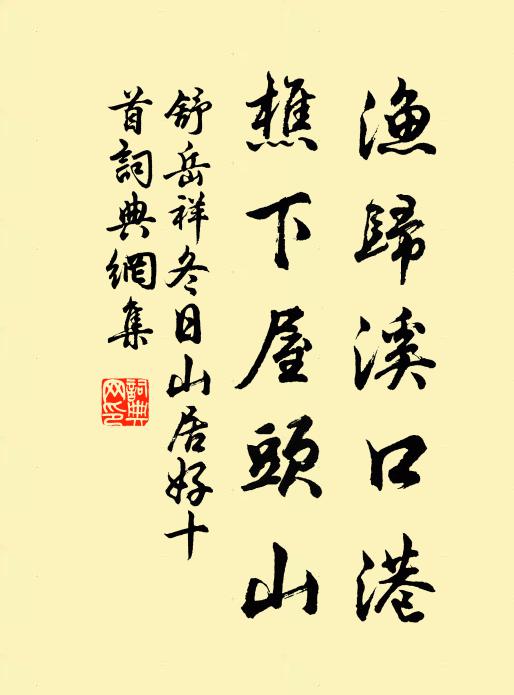 漁歸溪口港
樵下屋頭山
舒岳祥冬日山居好十
首詞典網集
詞典
网印